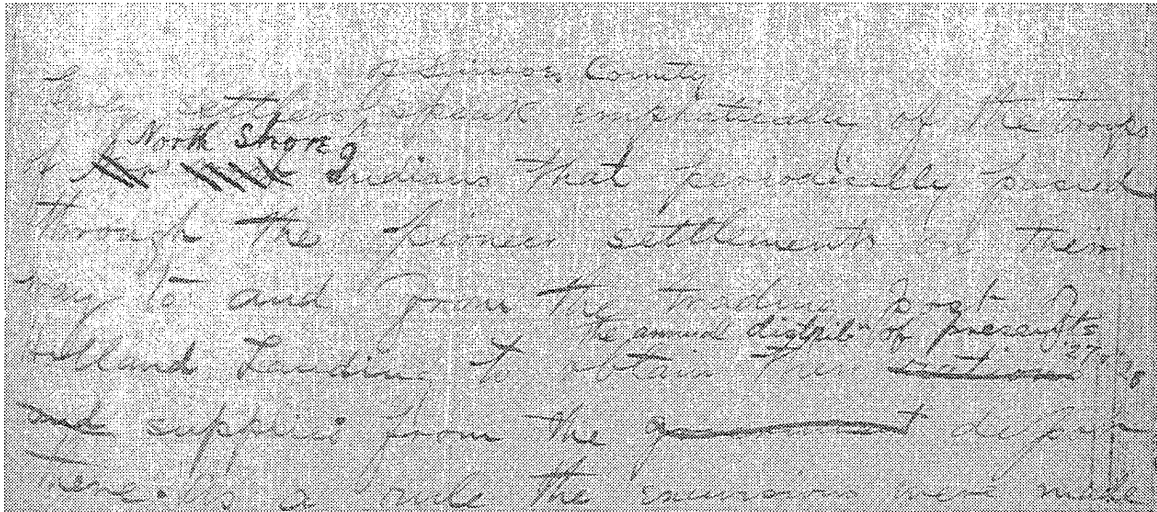 of Simcoe County
Early settlers speak emphatically of the troops
of North Shore Indians that periodically passed
through the pioneer settlements on their
way to and from the trading post
the annual distrib'n of presents
Holland Landing to obtain their rations
and supplies from the government depot
There. As a rule the excursions were made